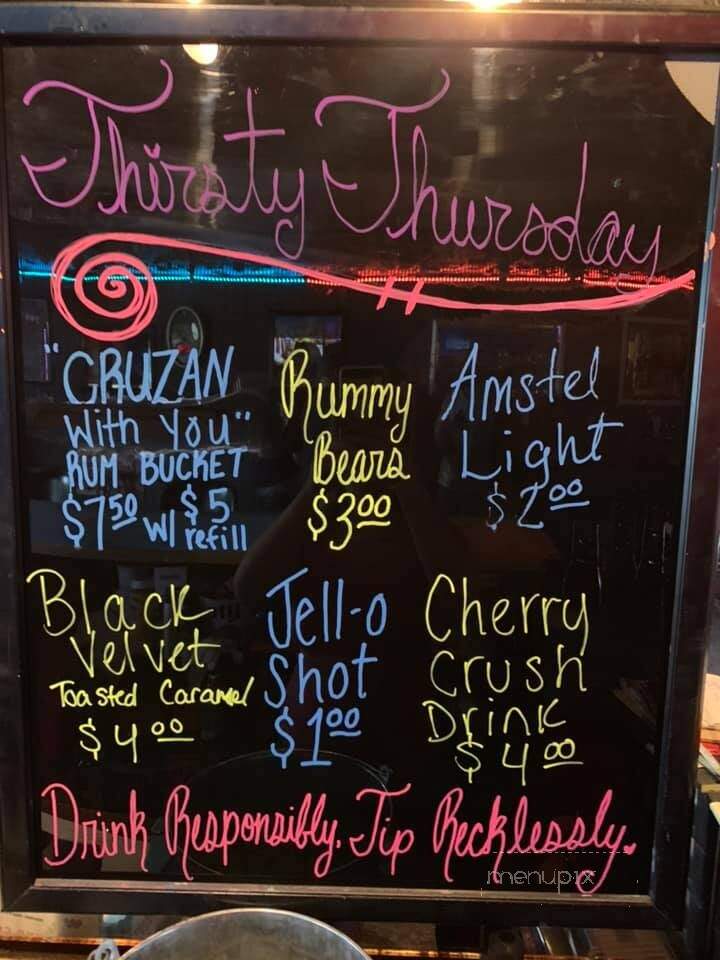 Thirsty Thursday
"CRUZAN
With You"
RUM BUCKET
$7.50 $5
w/ refill
Rummy
Bears
$3.00
Amstel
Light
$2.00
Black
Velvet
Toasted Caramel
$4.00
Jell-o
Shot
$1.00
Cherry
Crush
Drink
$4.00
Drink Responsibly. Tip Recklessly.
menupix